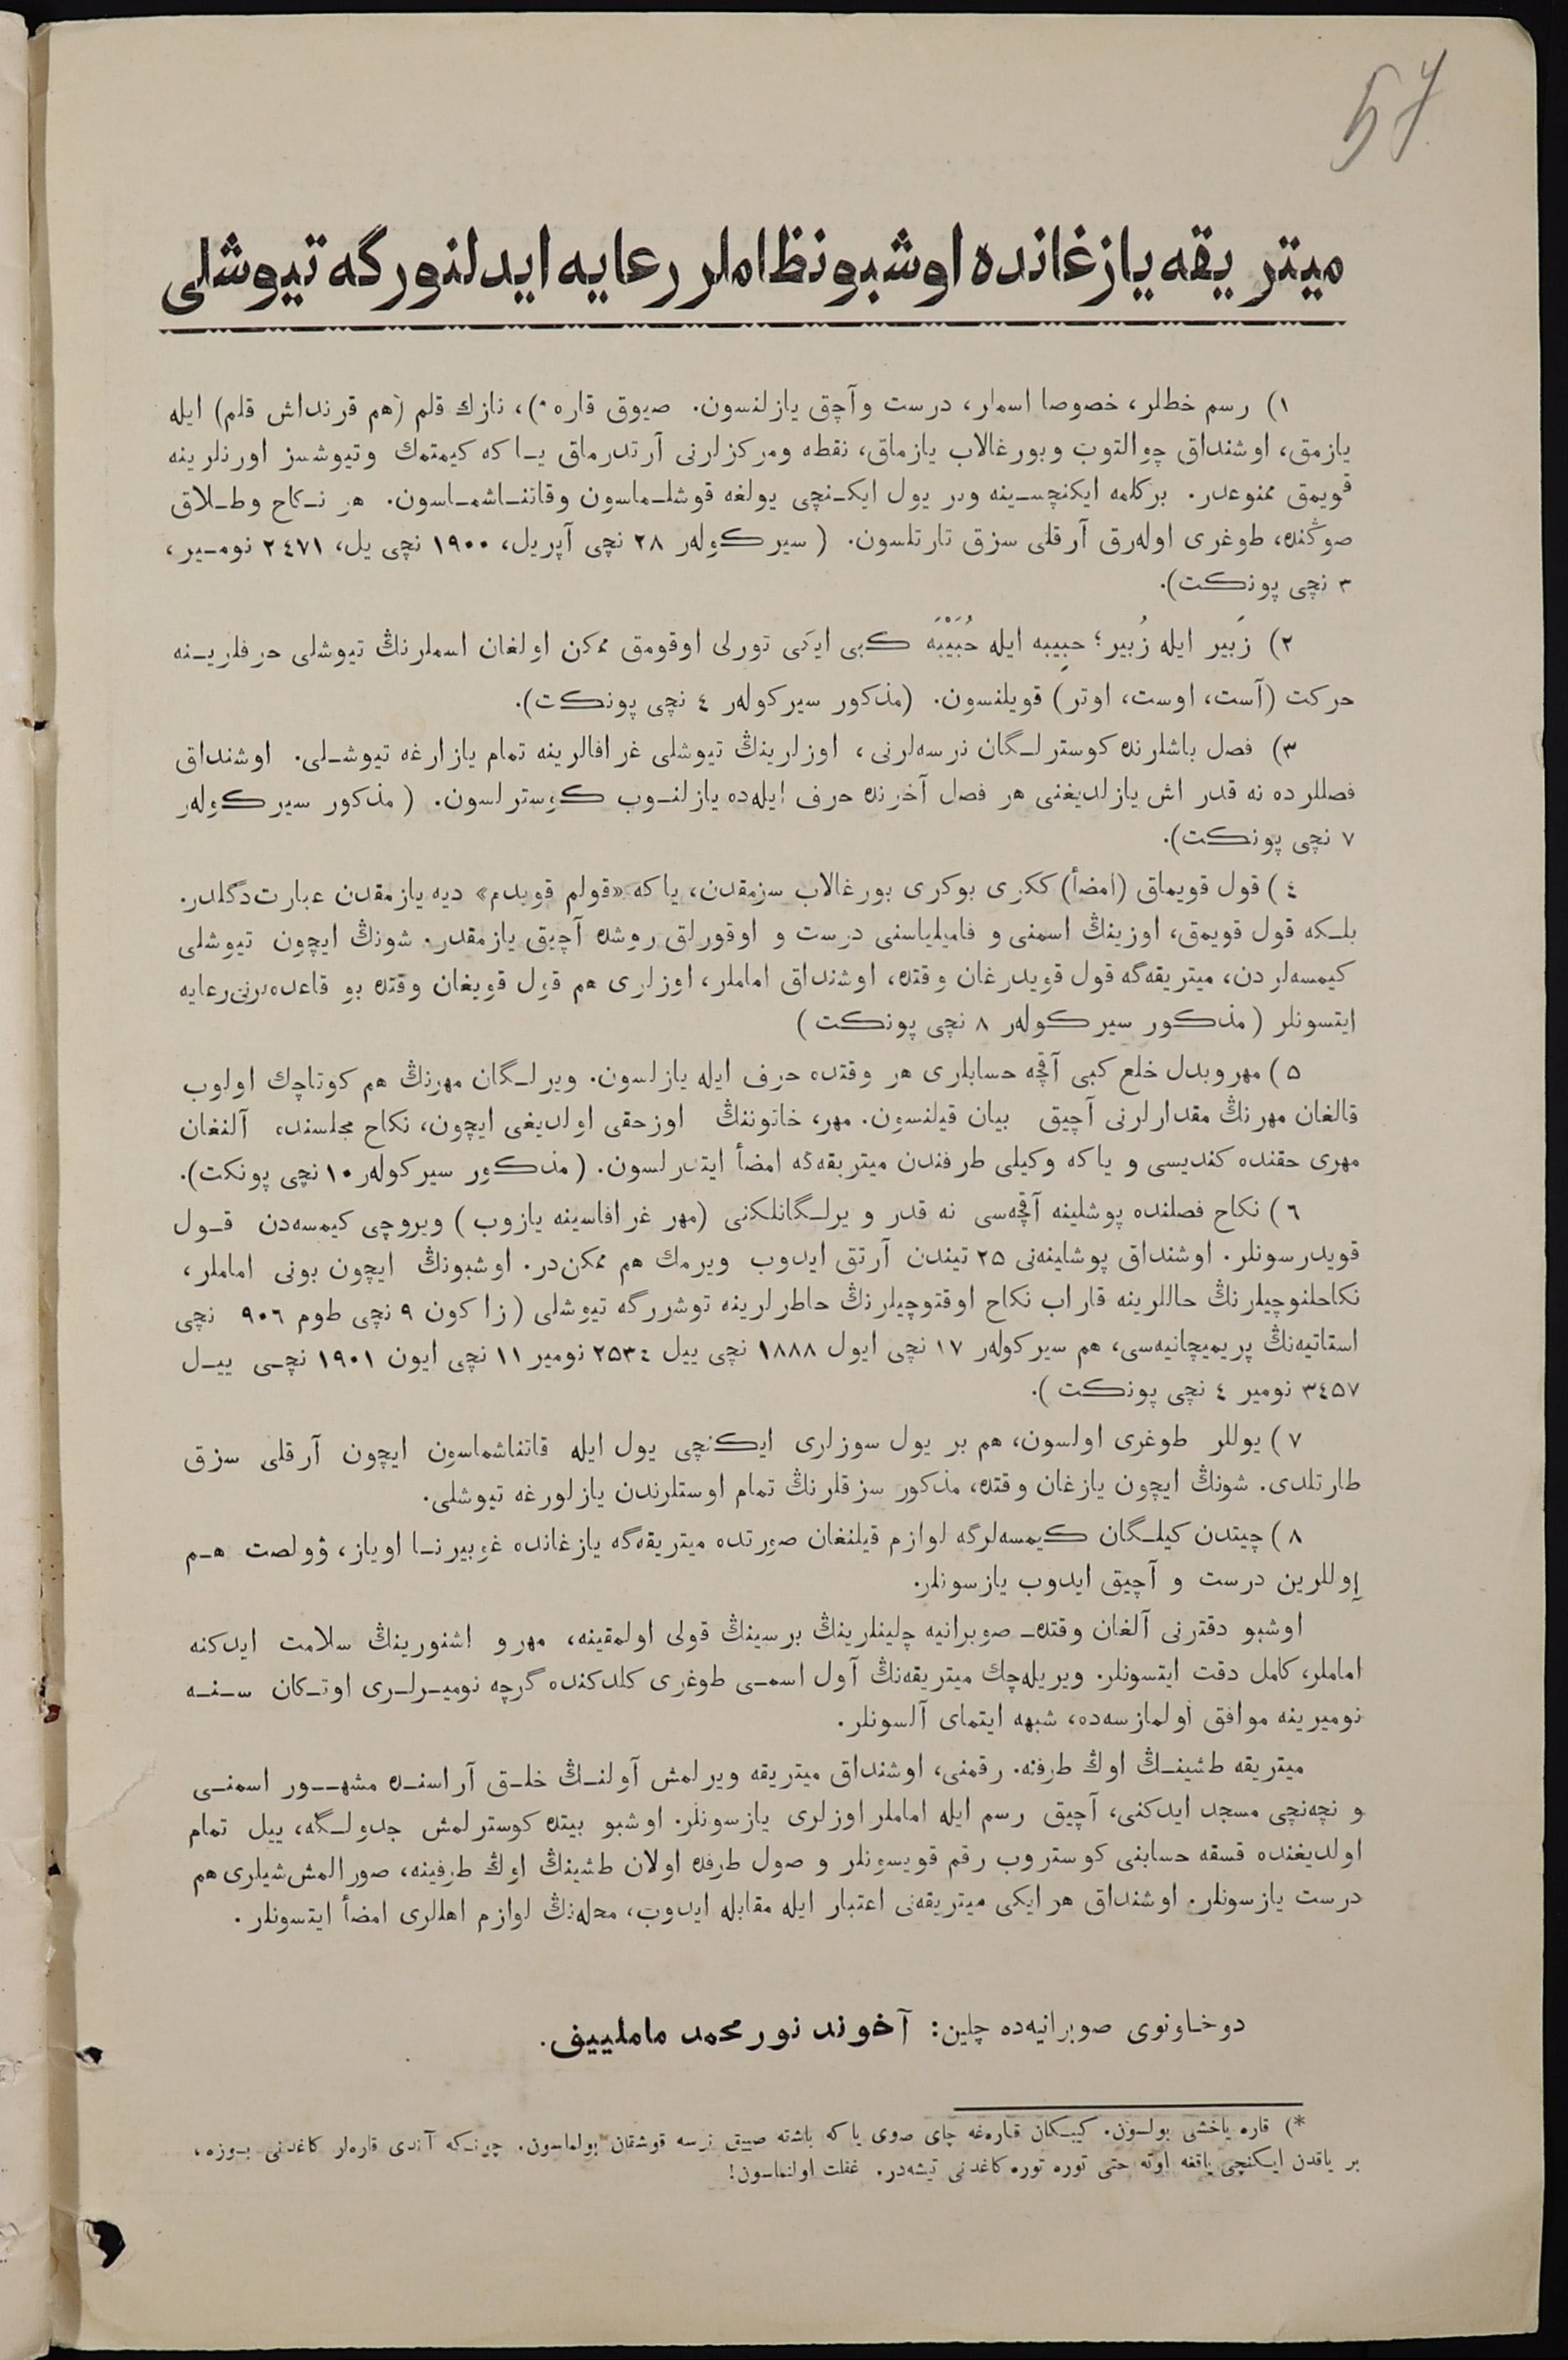 57
ميتريقه يازغانده اوشبو نظاملر رعايه ايدلنورگه تيوشلى
١) رسم خطلر، خصوصا اسملر، درست وآچق يازلنسون. صيوق قاره *)، نازك قلم (هم قرنداش قلم) ايله
يازمق، اوشنداق چوالتوب وبورغالاب يازماق، نقطه ومركزلرنى آرتدرماق يـا كه كيمتمك وتيوشسز اورنلرينه
قويمق ممنوعدر. بركلمه ايكنچسـينه وبر يول ايكـنچى يولغه قوشلـماسون وقاتنـاشمـاسون. هر نـكاح وطـلاق
صوڭنده، طوغرى اولەرق آرقلى سزق تارتلسون. (سيركولەر ٢٨ نچى آپريل، ١٩٠٠ نچى يل، ٢٤٧١ نومـير،
٣ نچى پونكت).
٢) زَبير ايله زُبير؛ حبِيبه ايله حُبَيْبَه كبى ايكى تورلى اوقومق ممكن اولغان اسملرنڭ تيوشلى حرفلريـنه
حركت (آست، اوست، اوتر) قويلنسون. (مذكور سيركولەر ٤ نچى پونكت).
٣) فصل باشلرنده كوسترلـگان نرسەلرنى، اوزلرينڭ تيوشلى غرافالرينه تمام يازارغه تيوشـلى. اوشنداق
فصللرده نه قدر اش يازلديغنى هر فصل آخرنده حرف ايلەده يازلنـوب كوسترلسون. (مذكور سيركولەر
٧ نچى پونكت).
٤) قول قويماق (امضأ) ككرى بوكرى بورغالاب سزمقدن، ياكه «قولم قويدم» ديه يازمقدن عبارت دگلدر.
بلـكه قول قويمق، اوزينڭ اسمنى و فاميلياسنى درست و اوقورلق روشده آچيق يازمقدر. شونڭ ايچون تيوشلى
كيمسەلردن، ميتريقەگه قول قويدرغان وقتده، اوشنداق اماملر، اوزلرى هم قول قويغان وقتده بو قاعدەلرنى رعايه
ايتسونلر (مذكور سيركولەر ٨ نچى پونكت)
٥) مهروبدل خلع كبى آقچه حسابلرى هر وقتده حرف ايله يازلسون. ويرلـگان مهرنڭ هم كوتاچك اولوب
قالغان مهرنڭ مقدارلرنى آچيق بيان قيلنسون. مهر، خاتوننڭ اوزحقى اولديغى ايچون، نكاح مجلسنده آلنغان
مهرى حقنده كنديسى و ياكه وكيلى طرفندن ميتريقەگه امضأ ايتدرلسون. (مذكور سيركولەر ١٠ نچى پونكت).
٦) نكاح فصلنده پوشلينه آقچەسى نه قدر ويرلـگانلكنى (مهر غرافاسينه يازوب) ويروچى كيمسەدن قـول
قويدرسونلر. اوشنداق پوشلينەنى ٢٥ تيندن آرتق ايدوب ويرمك هم ممكن در. اوشبونڭ ايچون بونى اماملر،
نكاحلنوچيلرنڭ حاللرينه قاراب نكاح اوقتوچيلرنڭ خاطرلرينه توشررگه تيوشلى (زاكون ٩ نچى طوم ٩٠٦ نچى
استاتيەنڭ پريميچانيەسى، هم سيركولەر ١٧ نچى ايول ١٨٨٨ نچى ييل ٢٥٣٤ نومير ١١ نچى ايون ١٩٠١ نچـى ييـل
٣٤٥٧ نومير ٤ نچى پونكت).
٧) يوللر طوغرى اولسون، هم بر يول سوزلرى ايكنچى يول ايله قاتناشماسون ايچون آرقلى سزق
طارتلدى. شونڭ ايچون يازغان وقتده، مذكور سزقلرنڭ تمام اوستلرندن يازلورغه تيوشلى.
٨) چيتدن كيلـگان كيمسەلرگه لوازم قيلنغان صورتده ميتريقەگه يازغانده غوبيرنـا اوياز، ۋولصت هـم
اوللرين درست و آچيق ايدوب يازسونلر.
اوشبو دفترنى آلغان وقتده صوبرانيه چلينلرينڭ برسينڭ قولى اولمقينه، مهرو اشنورينڭ سلامت ايدكنه
اماملر، كامل دقت ايتسونلر. ويريلەچك ميتريقەنڭ آول اسمـى طوغرى كلدكنده گرچه نوميـرلـرى اوتـكان سـنـه
نوميرينه موافق اولمازسەده، شبهه ايتماى آلسونلر.
ميتريقه طشينـڭ اوڭ طرفنه رقمنى، اوشنداق ميتريقه ويرلمش آولنـڭ خلـق آراسنـده مشهــور اسمنـى
و نچەنچى مسجد ايدكنى، آچيق رسم ايله اماملر اوزلرى يازسونلر. اوشبو بيتده كوسترلمش جدولـگه، ييل تمام
اولديغنده قسقه حسابنى كوستروب رقم قويسونلر و صول طرفده اولان طشينڭ اوڭ طرفينه، صورالمش شيلرى هم
درست يازسونلر. اوشنداق هر ايكى ميتريقەنى اعتبار ايله مقابله ايدوب، محلەنڭ لوازم اهللرى امضأ ايتسونلر.
دوخاونوى صوبرانيەده چلين: آخوند نورمحمد ماملييف.
*) قاره ياخشى بولسون. كيبـكان قارەغه چاى صوى ياكه باشته صييق نرسه قوشقان بولماسون. چونـكه آندى قارەلر كاغدنى بـوزه،
بر ياقدن ايـكنچى ياققه اوته حتى توره توره كاغدنى تيشەدر. غفلت اولنماسون!